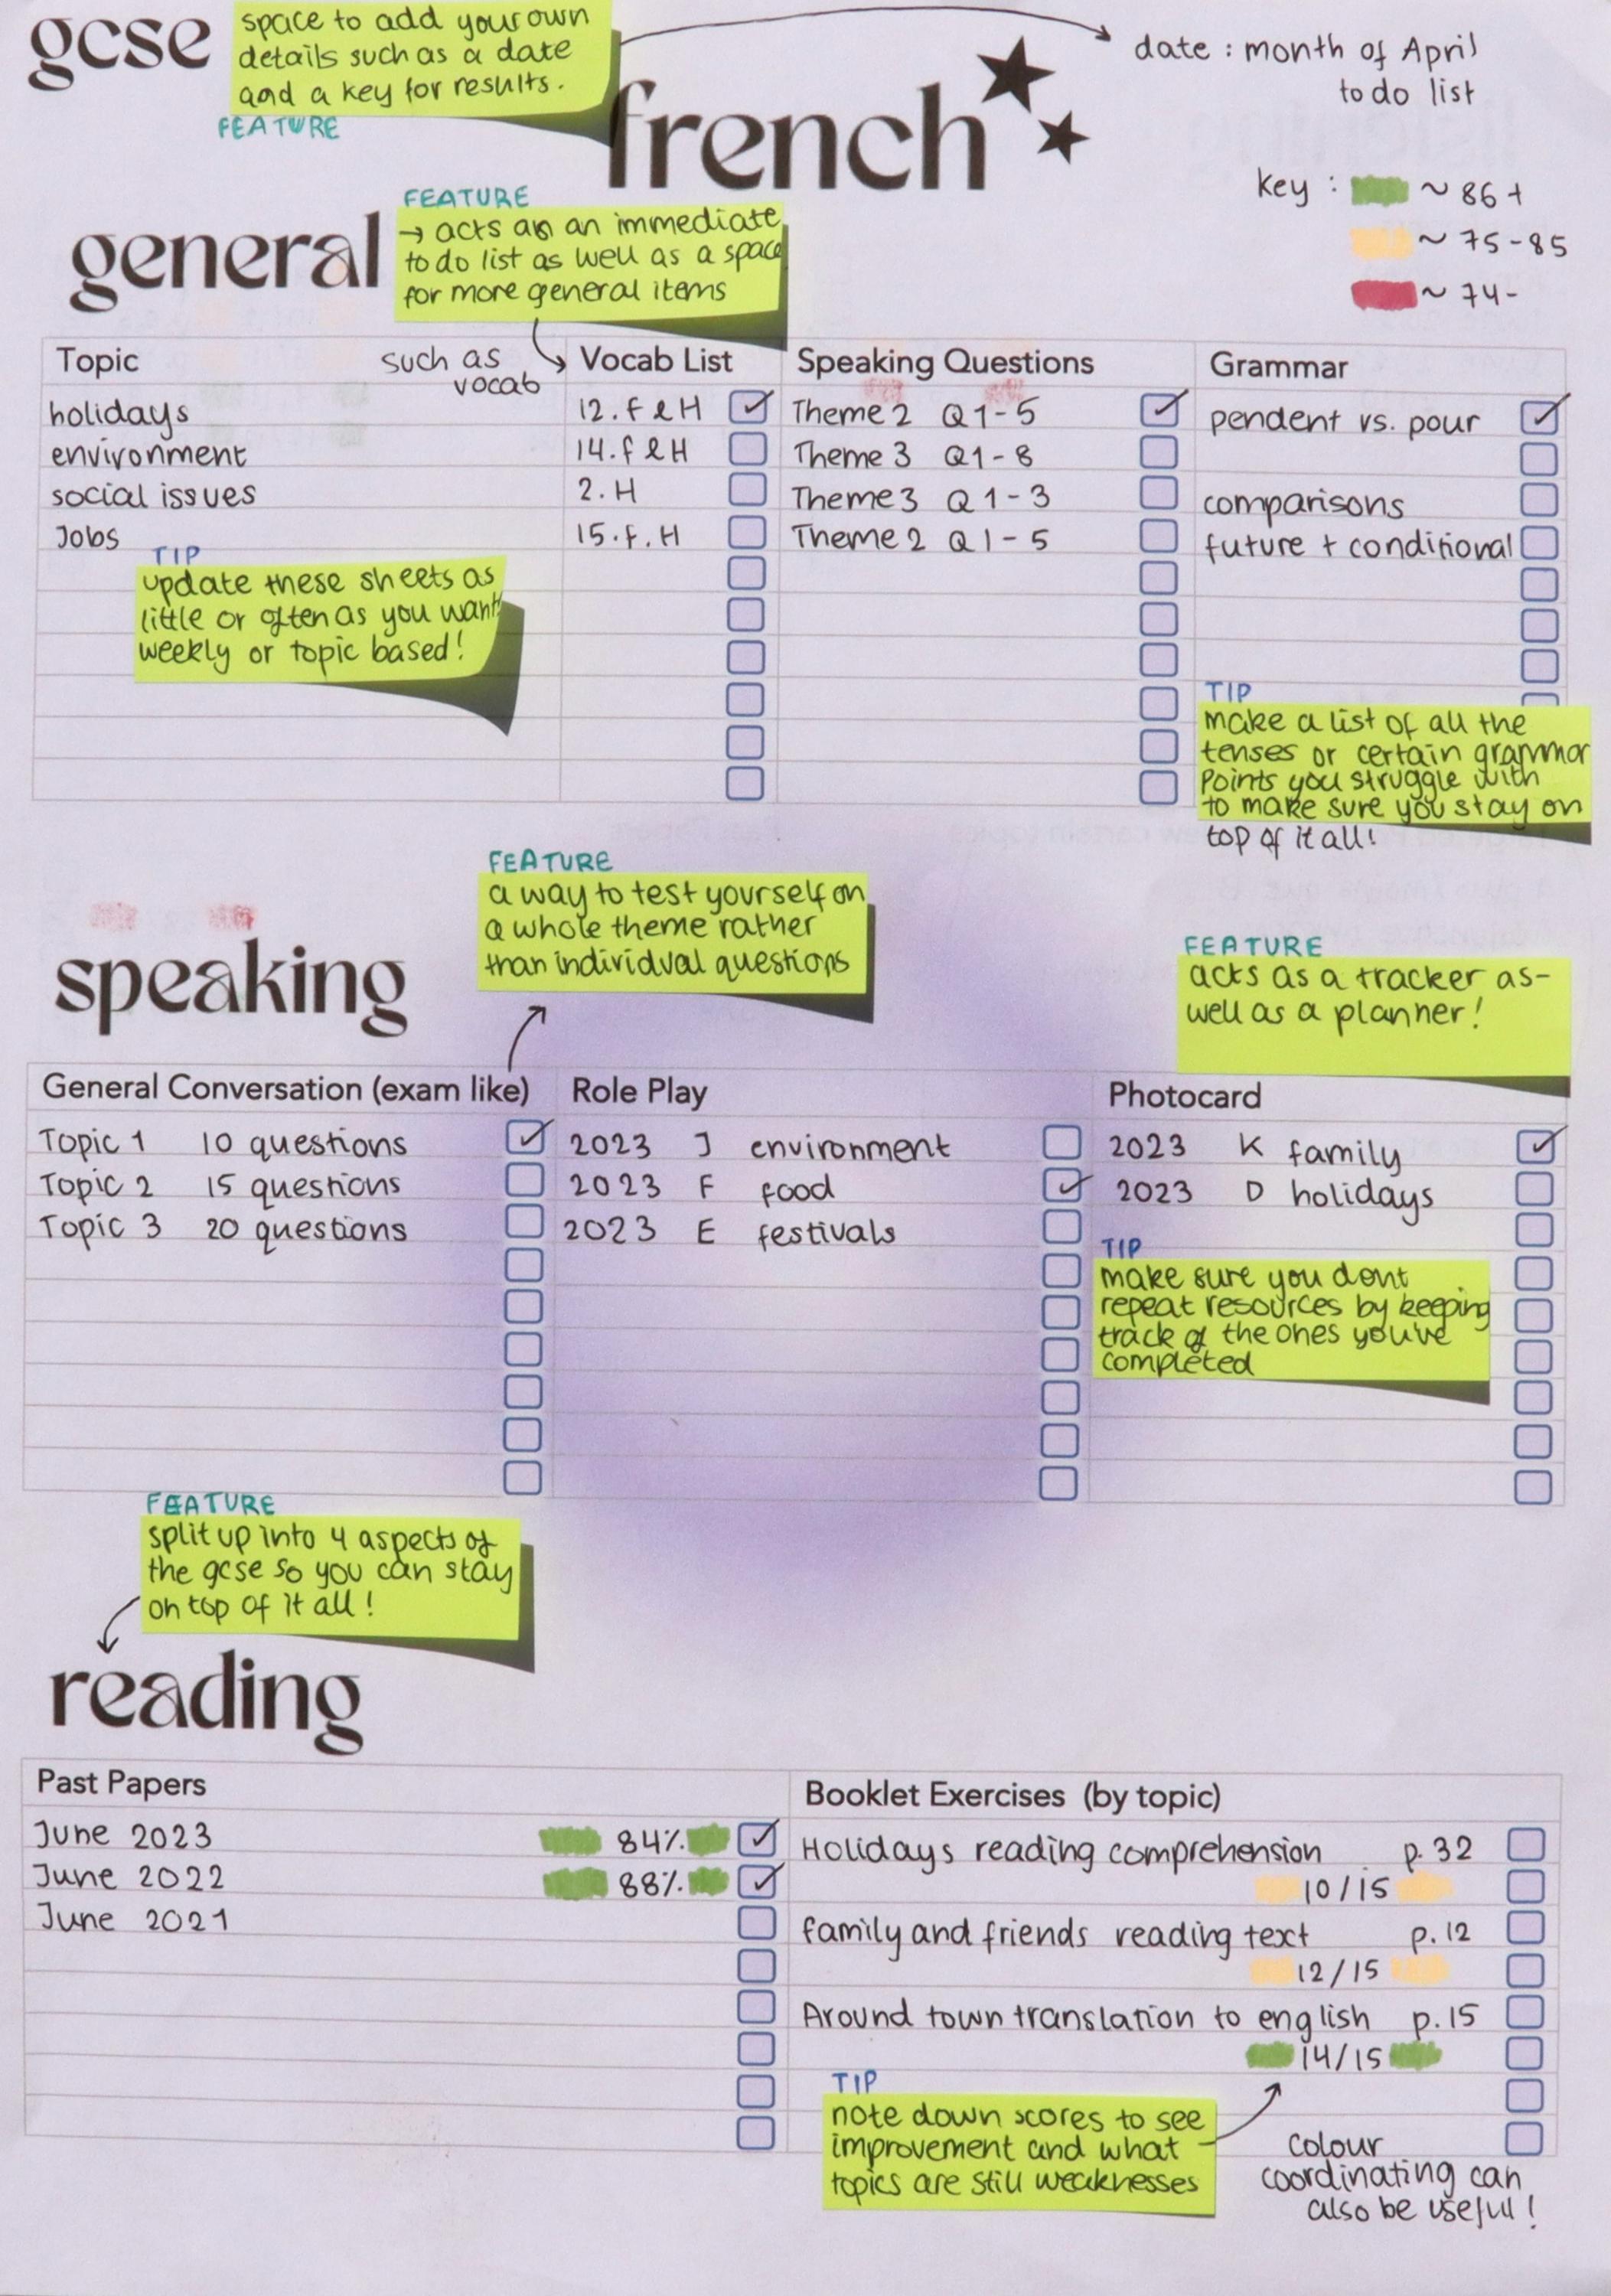 gcse
space to add your own
details such as a date
and a key for results.
FEATURE
date : month of April
to do list
french
key : ~ 86 +
~ 75-85
~ 74-
FEATURE
→ acts as an immediate
to do list as well as a space
for more general items
general
Topic such as Vocab List Speaking Questions Grammar
vocab
holidays 12. F & H Theme 2 Q1-5 pendent vs. pour
environment 14. F & H Theme 3 Q1-8
social issues 2. H Theme 3 Q1-3 comparisons
Jobs 15. F. H Theme 2 Q1-5 future + conditional
TIP
update these sheets as
little or often as you want!
weekly or topic based!
TIP
make a list of all the
tenses or certain grammar
points you struggle with
to make sure you stay on
top of it all!
FEATURE
a way to test yourself on
a whole theme rather
than individual questions
FEATURE
acts as a tracker as-
well as a planner!
speaking
General Conversation (exam like) Role Play Photocard
Topic 1 10 questions 2023 J environment 2023 K family
Topic 2 15 questions 2023 F food 2023 D holidays
Topic 3 20 questions 2023 E festivals
TIP
make sure you dont
repeat resources by keeping
track of the ones you've
completed
FEATURE
split up into 4 aspects of
the gcse so you can stay
on top of it all!
reading
Past Papers Booklet Exercises (by topic)
June 2023 84% Holidays reading comprehension p. 32
June 2022 88% 10/15
June 2021 family and friends reading text p. 12
12/15
Around town translation to english p. 15
14/15
TIP
note down scores to see
improvement and what
topics are still weaknesses
colour
coordinating can
also be useful!